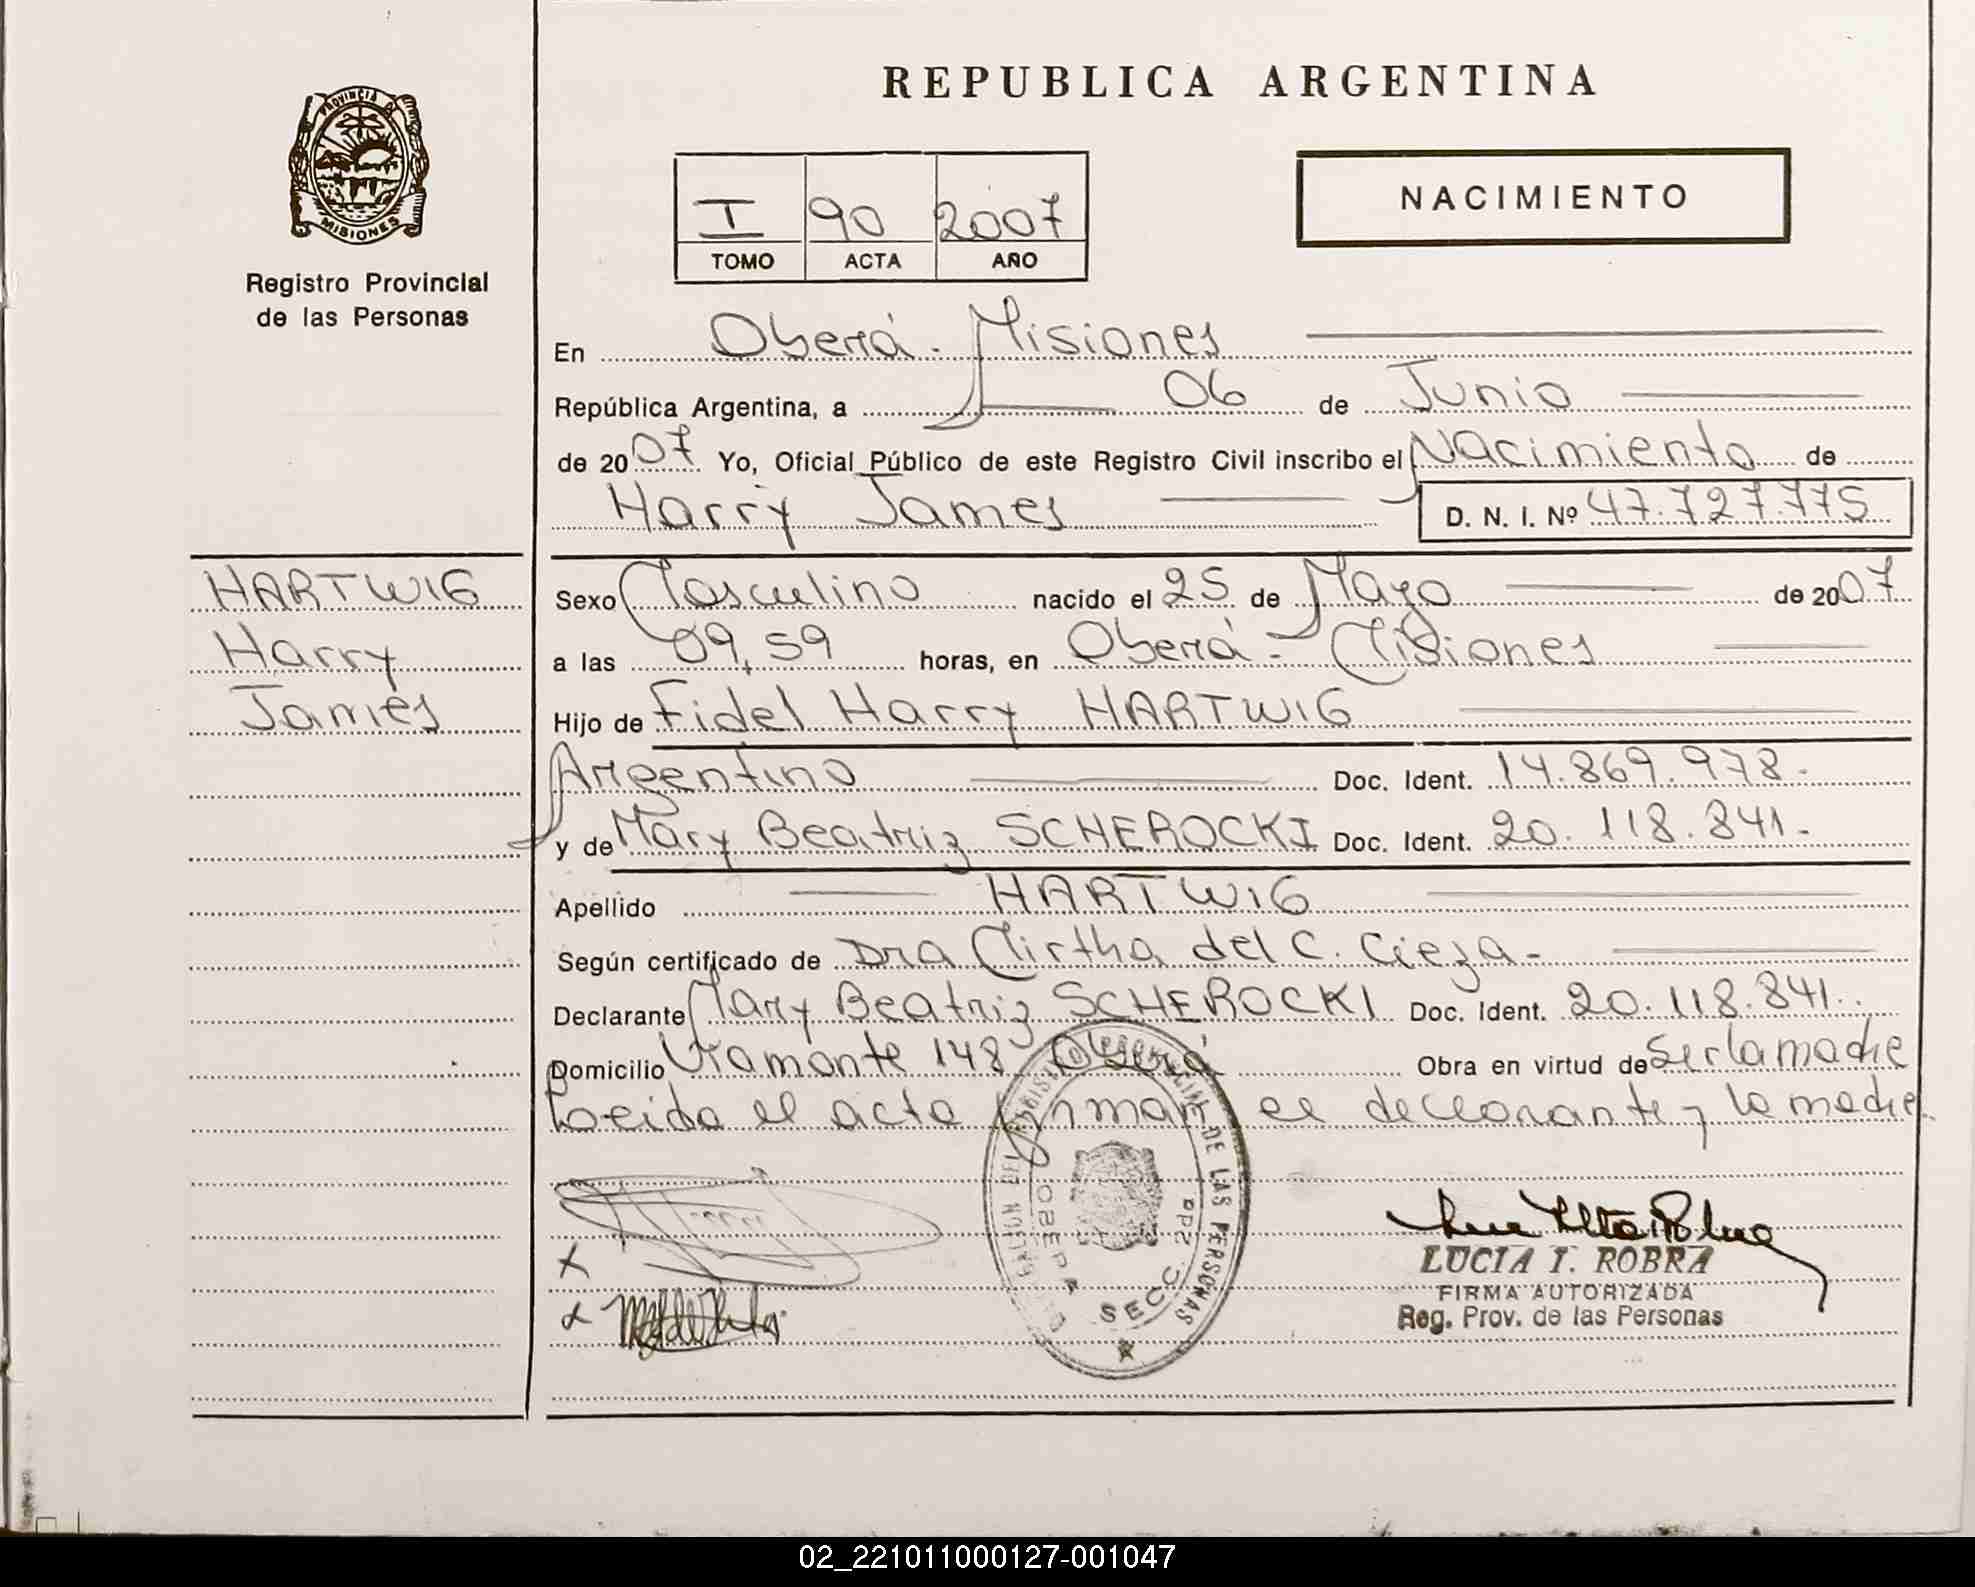 REPUBLICA ARGENTINA
PROVINCIA DE
MISIONES
Registro Provincial
de las Personas
I 90 2007
TOMO ACTA AÑO
NACIMIENTO
En Oberá - Misiones
República Argentina, a 06 de Junio
de 2007 Yo, Oficial Público de este Registro Civil inscribo el Nacimiento de
Harry James D. N. I. Nº 47.727.775
HARTWIG
Harry
James
Sexo Masculino nacido el 25 de Mayo de 2007
a las 09,59 horas, en Oberá - Misiones
Hijo de Fidel Harry HARTWIG
Argentino Doc. Ident. 14.869.978.
y de Mary Beatriz SCHEROCKI Doc. Ident. 20.118.841.
Apellido HARTWIG
Según certificado de Dra Mirtha del C. Cieza.
Declarante Mary Beatriz SCHEROCKI Doc. Ident. 20.118.841..
Domicilio Viamonte 148 Oberá Obra en virtud de ser la madre
Leida el acta firman el declarante y la madre.
DE LAS PERSONAS
OBERA SECC. 2da
LUCIA I. ROBRA
FIRMA AUTORIZADA
Reg. Prov. de las Personas
02_221011000127-001047